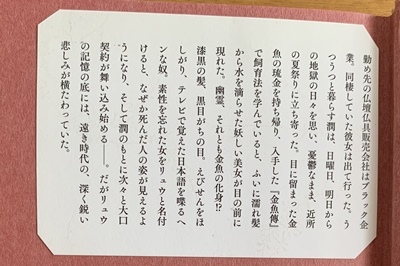 勤め先の仏壇仏具販売会社はブラック企
業。同棲していた彼女は出て行った。う
つうつと暮らす潤は、日曜日、明日から
の地獄の日々を思い、憂鬱なまま、近所
の夏祭りに立ち寄った。目に留まった金
魚の琉金を持ち帰り、入手した『金魚傳』
で飼育法を学んでいると、ふいに濡れ髪
から水を滴らせた妖しい美女が目の前に
現れた。幽霊、それとも金魚の化身!?
漆黒の髪、黒目がちの目。えびせんをほ
しがり、テレビで覚えた日本語を喋るヘ
ンな奴。素性を忘れた女をリュウと名付
けると、なぜか死んだ人の姿が見えるよ
うになり、そして潤のもとに次々と大口
契約が舞い込み始める――。だがリュウ
の記憶の底には、遠き時代の、深く鋭い
悲しみが横たわっていた。